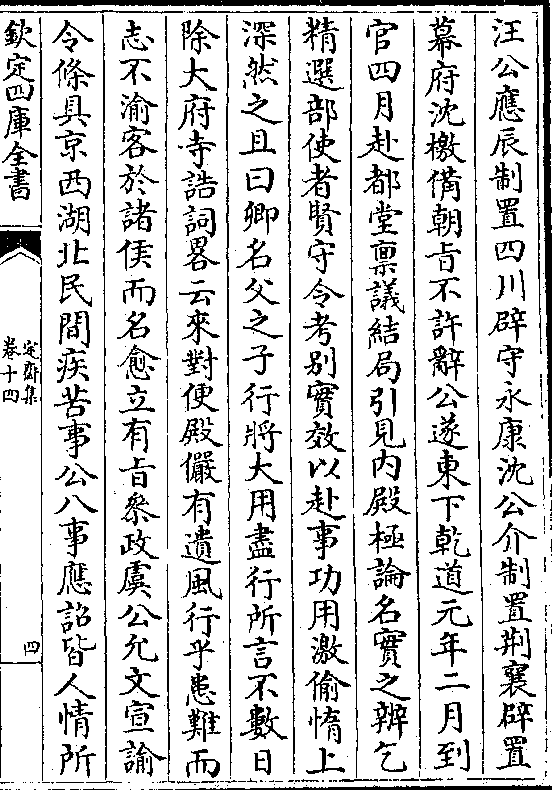 汪公應辰制置四川辟守永康沈公介制置荆襄辟置
幕府沈檄備朝旨不許辭公遂東下乾道元年二月到
官四月赴都堂禀議結局引見内殿極論名實之辨乞
精選部使者賢守令考别實效以赴事功用激偷惰上
深然之且曰卿名父之子行將大用盡行所言不數日
除大府寺誥詞畧云來對便殿儼有遺風行乎患難而
志不渝客於諸侯而名愈立有旨叅政虞公允文宣諭
令條具京西湖北民間疾苦事公八事應詔皆人情所
欽定四庫全書
定齋集
卷十四
四